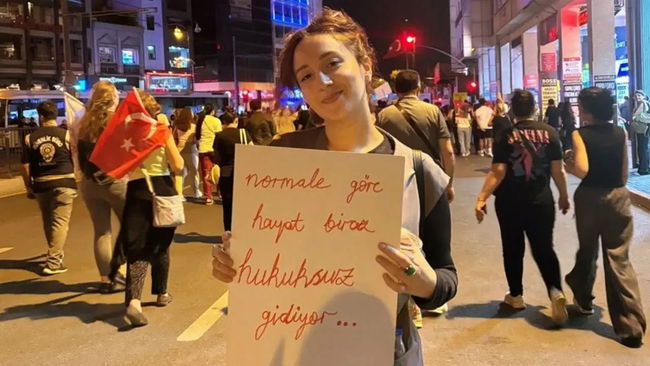 normale göre
hayat biraz
hukuksuz
gidiyor...